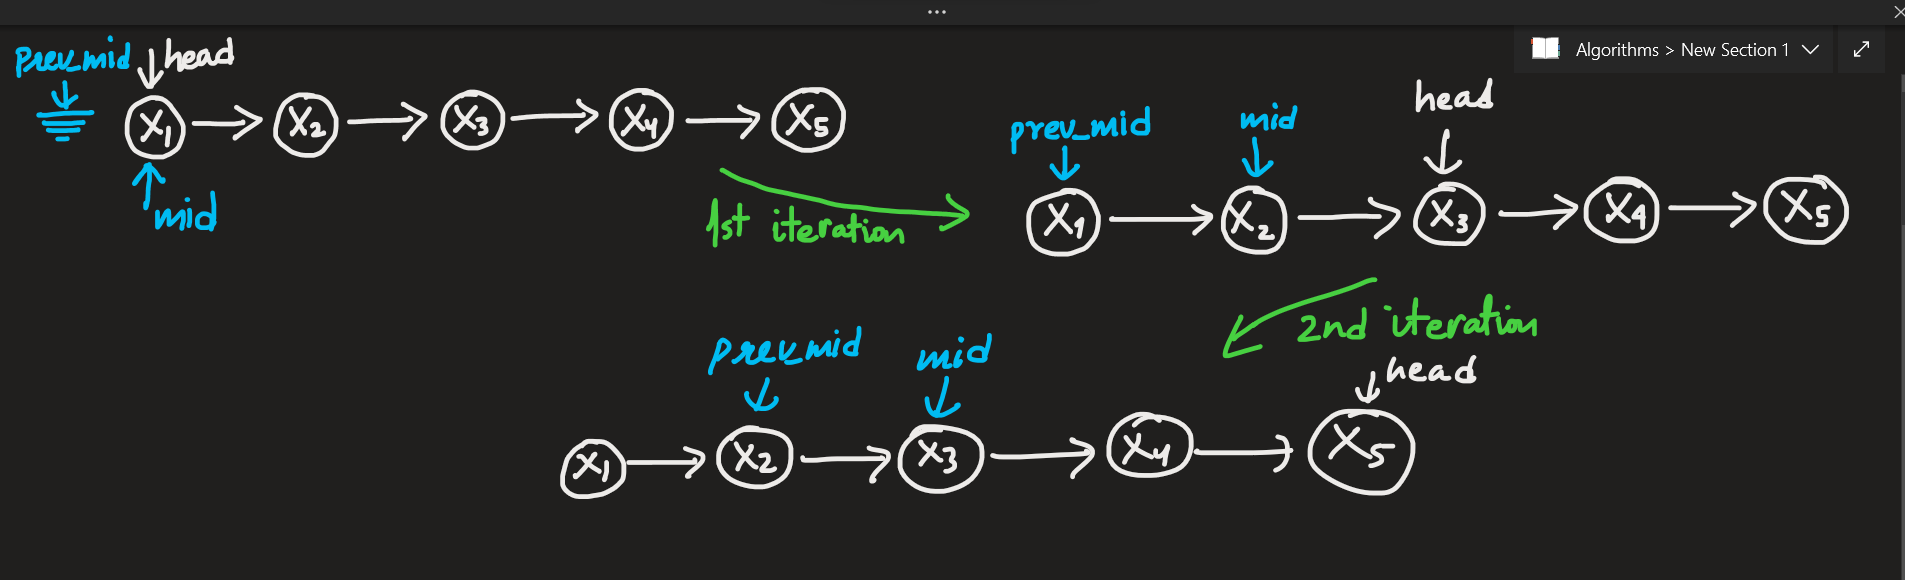 Algorithms > New Section 1
prev_mid
head
X1 X2 X3 X4 X5
mid
1st iteration
prev_mid
mid
head
X1 X2 X3 X4 X5
2nd iteration
prev_mid
mid
head
X1 X2 X3 X4 X5